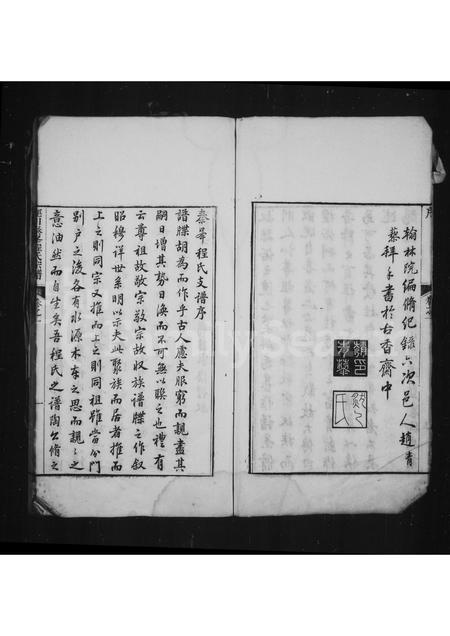 翰林院編脩紀錄六次邑人趙青
藜拜手書於古香齋中
秦峯程氏支譜序
譜牒胡為而作乎古人慮夫服窮而親盡其
嗣日增其勢日渙而不可無以聯之也禮有
云尊祖故敬宗敬宗故收族譜牒之作叙
昭穆詳世系明以示夫此聚族而居者推而
上之則同宗又推而上之則同祖雖當分門
別戶之後各有水源木本之思而親親之
意油然而自生矣吾程氏之譜陶公脩之